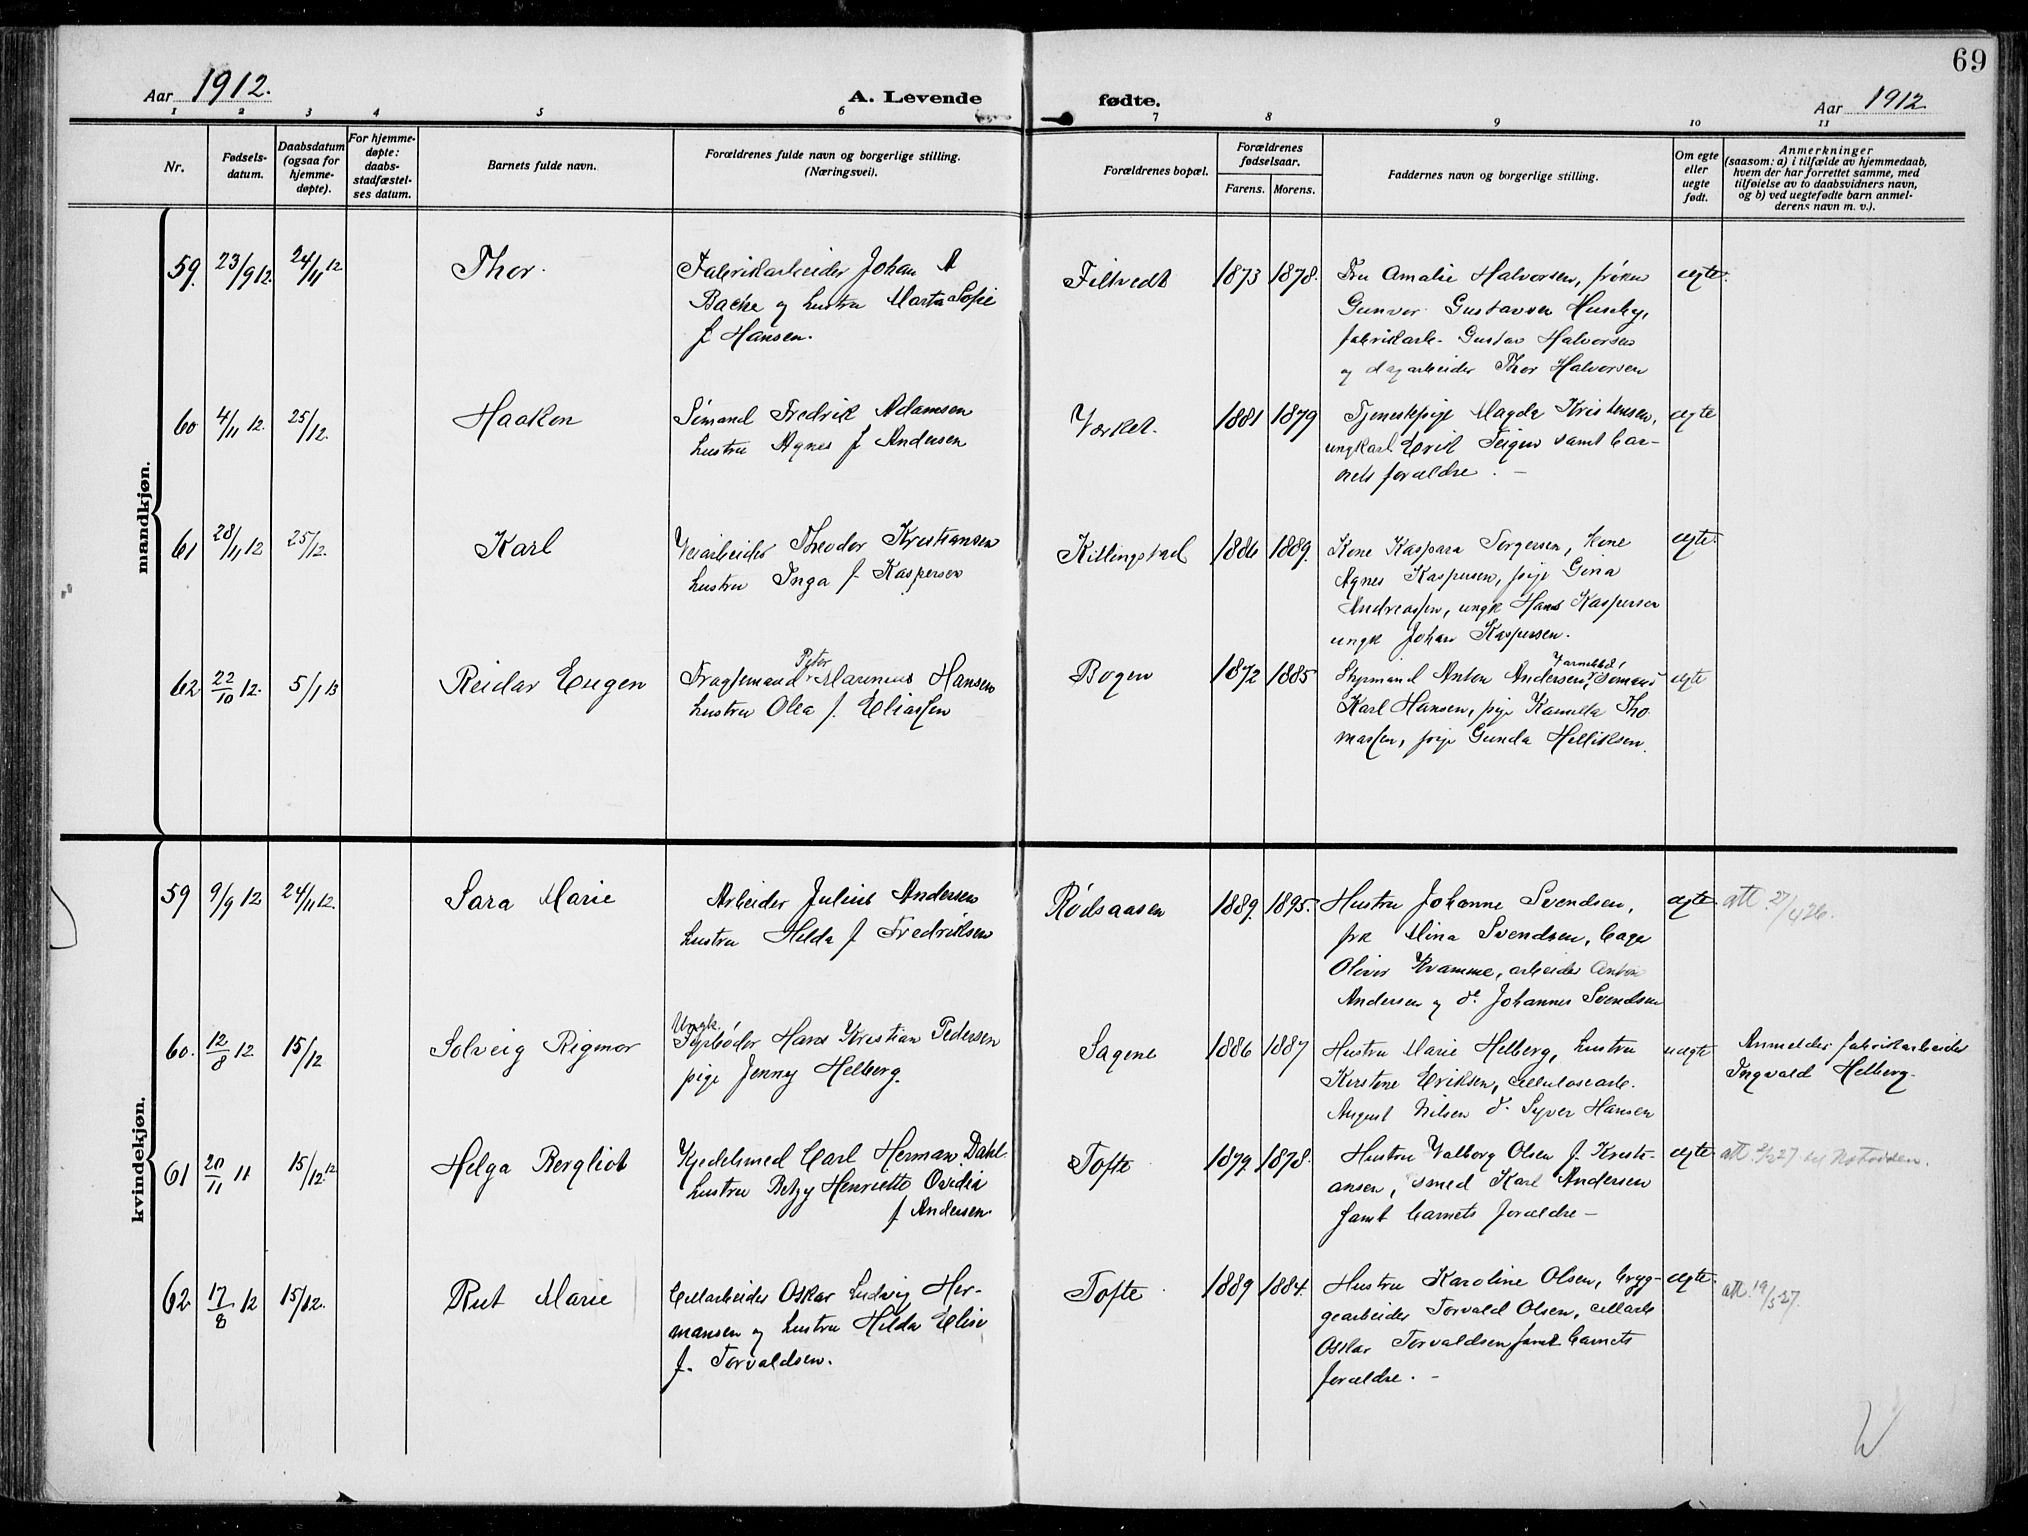 69
Aar 1912.
A. Levende
fødte.
Aar 1912.
1 2 3 4 5 6 7 8 9 10 11
Nr.
Fødsels-
datum.
Daabsdatum
(ogsaa for
hjemme-
døpte).
For hjemme-
døpte:
daabs-
stadfæstel-
ses datum.
Barnets fulde navn.
Forældrenes fulde navn og borgerlige stilling.
(Næringsvei).
Forældrenes bopæl.
Forældrenes
fødselsaar.
Farens. Morens.
Faddernes navn og borgerlige stilling.
Om egte
eller
uegte
født.
Anmerkninger
(saasom: a) i tilfælde av hjemmedaab,
hvem der har forrettet samme, med
tilføielse av to daabsvidners navn,
og b) ved uegtefødte barn anmel-
derens navn m. v.).
mandkjøn.
59. 23/9 12. 24/11 12 Thor. Fabrikarbeider Johan A
Backe og hustru Marta Sofie
f Hansen.
Filtvedt 1873 1878. Fru Amalie Halvorsen, frøken
Gunvor Gustavsen Huseby,
fabrikarb. Gustav Halvorsen
og dagarbeider Thor Halvorsen
egte.
60 4/11 12. 25/12. Haakon Sømand Fredrik Adamsen
hustru Agnes f Andersen
Værket. 1881 1879 Tjenestepige Magda Kristensen,
ungkarl Erik Teigen samt bar-
nets forældre. -
egte
61 28/11 12 25/12. Karl Veiarbeider Theodor Kristiansen
hustru Inga f. Kaspersen
Killingstad 1886 1889. Kone Kaspara Torgersen, kone
Agnes Kaspersen, pige Gina
Andreassen, ungk Hans Kaspersen
ungk Johan Kaspersen.
egte.
62 22/10 12. 5/1 13 Reidar Eugen Peter
Fragtemand Marinius Hansen
hustru Olea f. Eliassen
Bogen 1872 1885 Styrmand Anton Andersen, sømand
Karl Hansen, pige Kamilla Tho-
massen, pige Gunda Helliksen.
egte
kvindekjøn.
59 9/9 12 24/11 12. Sara Marie Arbeider Julius Andersen
hustru Hilda f Fredriksen
Rødsaasen 1889. 1895. Hustru Johanne Svendsen,
frk Mina Svendsen, bager
Oliver Kramme, arbeider Anton
Andersen og do. Johannes Svendsen
egte att. 27/4 26.
60. 12/8 12 15/12 Solveig Rigmor Ungk.
Fyrbøder Hans Kristian Pedersen
pige Jenny Helberg.
Sagene 1886 1887 Hustru Marie Helberg, hustru
Kirstine Eriksen, cellulosearb.
August Nilsen do. Syver Hansen
uegte Anmelder fabrikarbeider
Ingvald Helberg.
61 20/11 11 15/12. 12 Helga Bergliot Kjedelsmed Carl Herman Dahl
hustru Betzy Henriette Ovidia
f Andersen.
Tofte 1879. 1878. Hustru Valborg Olsen f. Kristi-
ansen, smed Karl Andersen
samt barnets forældre -
egte
62 17/8 12 15/12. Rut Marie Cellarbeider Oskar Ludvig Her-
mansen og hustru Hilda Elise
f. Torvaldsen.
Tofte 1889 1884. Hustru Karoline Olsen, bryg-
gearbeider Torvald Olsen, cellarb
Oskar Torvaldsen samt barnets
forældre. -
egte. att. 19/5 27.